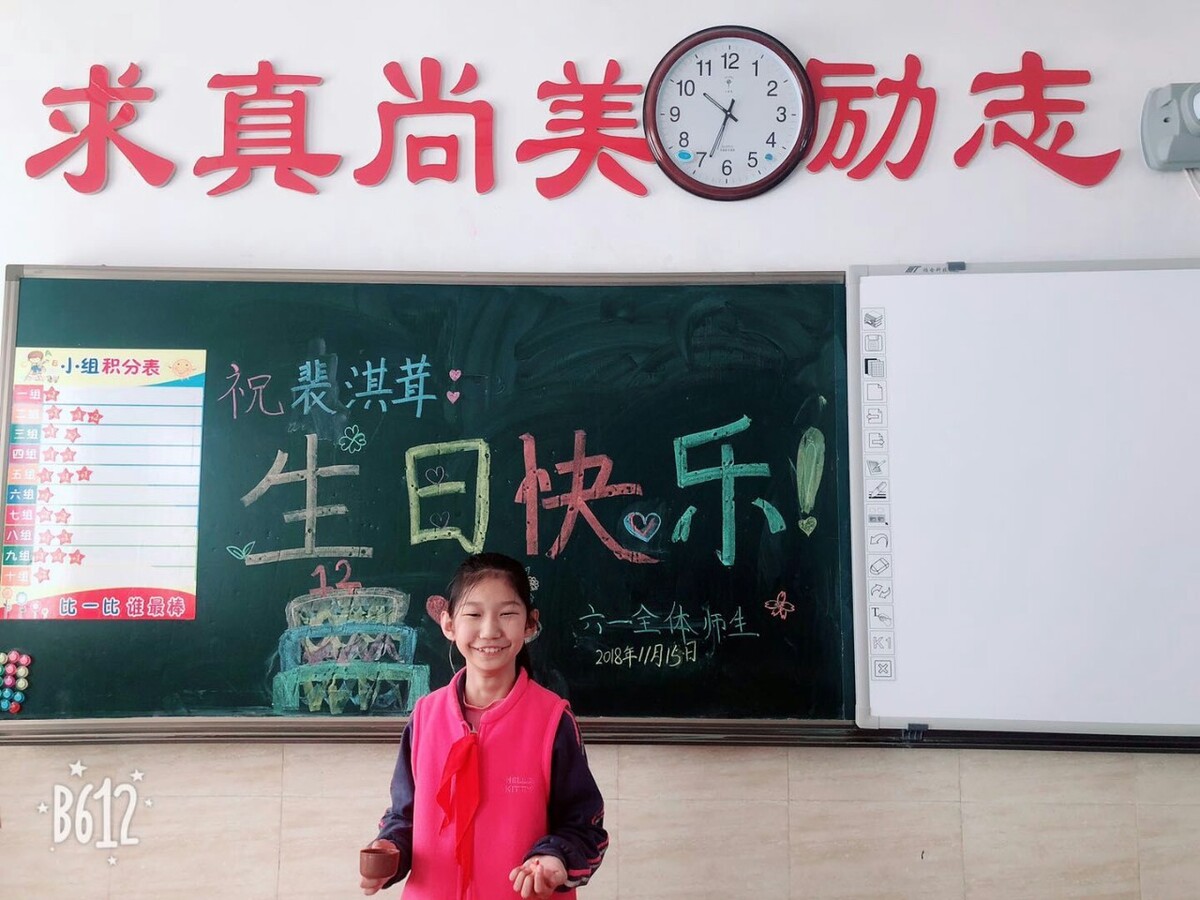 求真尚美励志
12
1
2
3
4
5
6
7
8
9
10
11
小组积分表
一组
二组
三组
四组
五组
六组
七组
八组
九组
十组
比一比 谁最棒
祝裴淇茸:
生日快乐!
12
六一全体师生
2018年11月15日
HELLO
KITTY
T
K1
B612